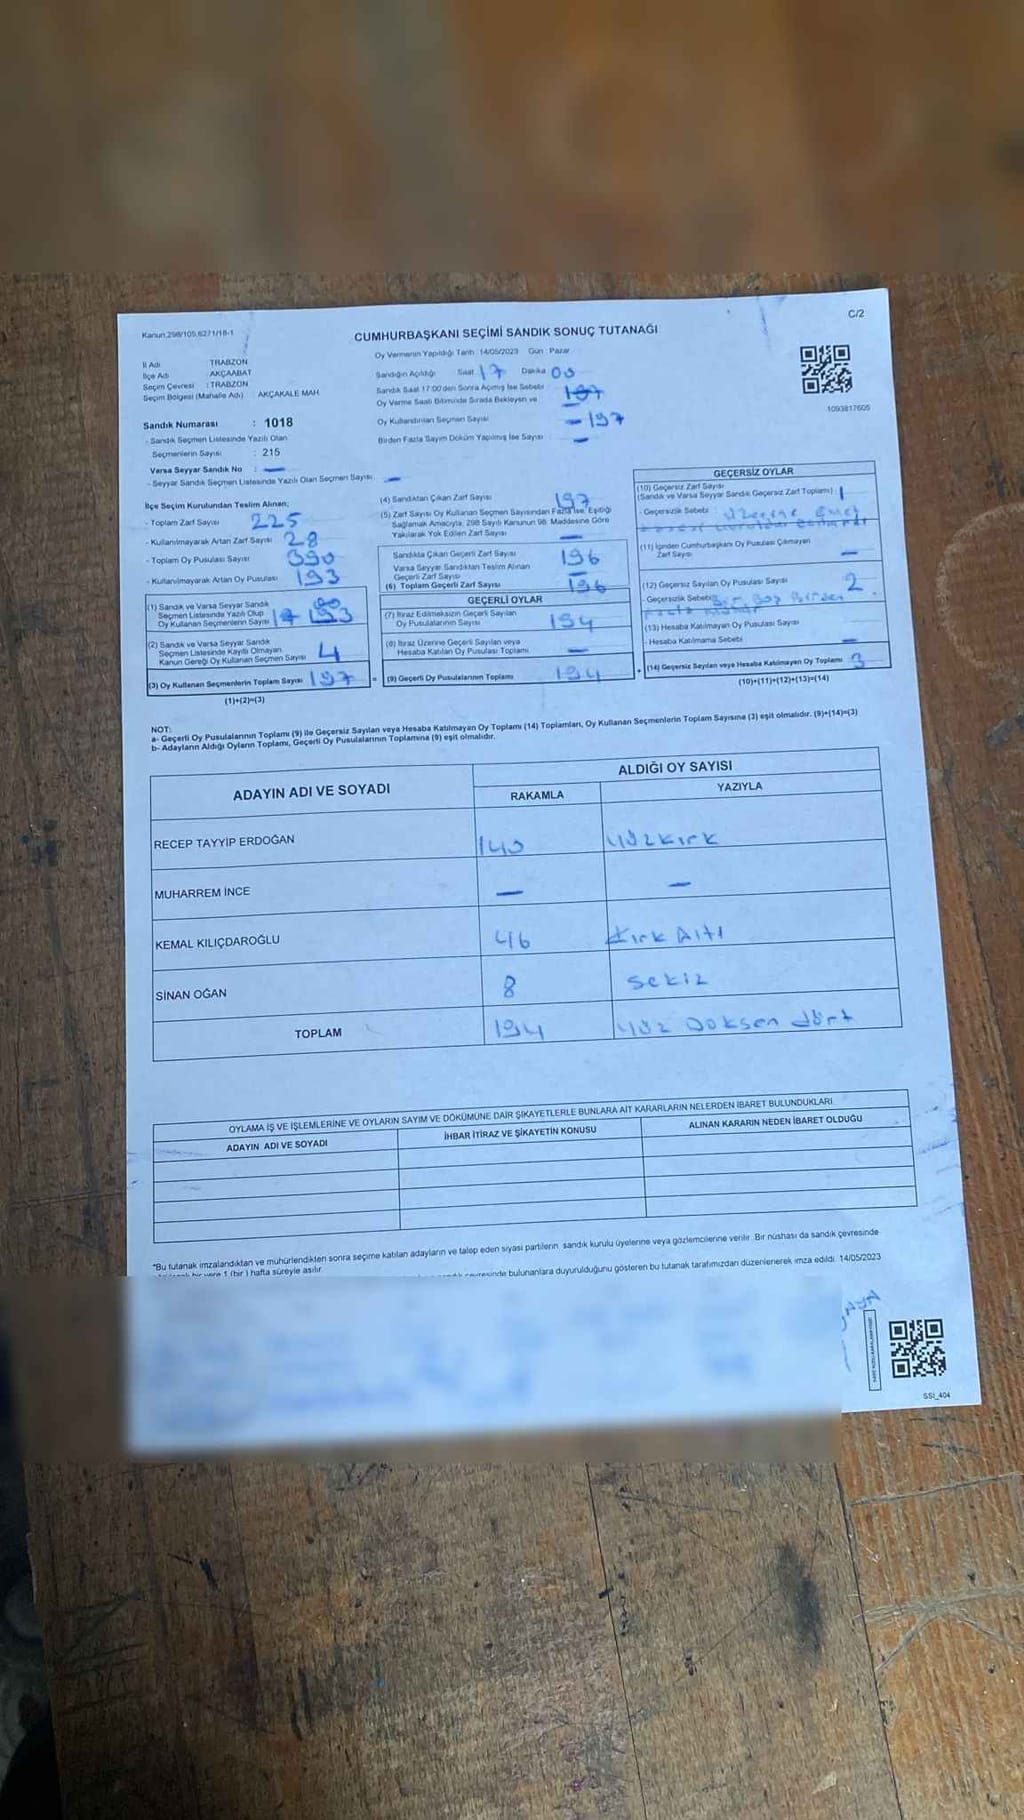 Kanun,298/105,6271/18-1
C/2
CUMHURBAŞKANI SEÇİMİ SANDIK SONUÇ TUTANAĞI
İl Adı TRABZON
İlçe Adı AKÇAABAT
Seçim Çevresi : TRABZON
Seçim Bölgesi (Mahalle Adı) : AKÇAKALE MAH
Sandık Numarası : 1018
- Sandık Seçmen Listesinde Yazılı Olan
Seçmenlerin Sayısı : 215
Varsa Seyyar Sandık No : —
- Seyyar Sandık Seçmen Listesinde Yazılı Olan Seçmen Sayısı —
Oy Vermenin Yapıldığı Tarih : 14/05/2023 Gün : Pazar
Sandığın Açıldığı Saat 17 Dakika 00
Sandık Saat 17:00'den Sonra Açılmış İse Sebebi
Oy Verme Saati Bitiminde Sırada Bekleyen ve 197
Oy Kullandırılan Seçmen Sayısı — 197
Birden Fazla Sayım Döküm Yapılmış İse Sayısı —
1093817605
İlçe Seçim Kurulundan Teslim Alınan;
- Toplam Zarf Sayısı 225
- Kullanılmayarak Artan Zarf Sayısı 28
- Toplam Oy Pusulası Sayısı 390
- Kullanılmayarak Artan Oy Pusulası 193
(1) Sandık ve Varsa Seyyar Sandık
Seçmen Listesinde Yazılı Olup
Oy Kullanan Seçmenlerin Sayısı 193
(2) Sandık ve Varsa Seyyar Sandık
Seçmen Listesinde Kayıtlı Olmayan
Kanun Gereği Oy Kullanan Seçmen Sayısı 4
(3) Oy Kullanan Seçmenlerin Toplam Sayısı 197
(1)+(2)=(3)
(4) Sandıktan Çıkan Zarf Sayısı 197
(5) Zarf Sayısı Oy Kullanan Seçmen Sayısından Fazla İse, Eşitliği
Sağlamak Amacıyla, 298 Sayılı Kanunun 98. Maddesine Göre
Yakılarak Yok Edilen Zarf Sayısı —
Sandıkta Çıkan Geçerli Zarf Sayısı 196
Varsa Seyyar Sandıktan Teslim Alınan
Geçerli Zarf Sayısı —
(6) Toplam Geçerli Zarf Sayısı 196
GEÇERLİ OYLAR
(7) İtiraz Edilmeksizin Geçerli Sayılan
Oy Pusulalarının Sayısı 194
(8) İtiraz Üzerine Geçerli Sayılan veya
Hesaba Katılan Oy Pusulası Toplamı —
= (9) Geçerli Oy Pusulalarının Toplamı 194
GEÇERSİZ OYLAR
(10) Geçersiz Zarf Sayısı
(Sandık ve Varsa Seyyar Sandık Geçersiz Zarf Toplamı) 1
- Geçersizlik Sebebi üzerine
(11) İçinden Cumhurbaşkanı Oy Pusulası Çıkmayan
Zarf Sayısı —
(12) Geçersiz Sayılan Oy Pusulası Sayısı 2
- Geçersizlik Sebebi Bir Boş Birden
fazla mühür
(13) Hesaba Katılmayan Oy Pusulası Sayısı
- Hesaba Katılmama Sebebi —
+ (14) Geçersiz Sayılan veya Hesaba Katılmayan Oy Toplamı 3
(10)+(11)+(12)+(13)=(14)
NOT:
a- Geçerli Oy Pusulalarının Toplamı (9) ile Geçersiz Sayılan veya Hesaba Katılmayan Oy Toplamı (14) Toplamları, Oy Kullanan Seçmenlerin Toplam Sayısına (3) eşit olmalıdır. (9)+(14)=(3)
b- Adayların Aldığı Oyların Toplamı, Geçerli Oy Pusulalarının Toplamına (9) eşit olmalıdır.
ADAYIN ADI VE SOYADI
ALDIĞI OY SAYISI
RAKAMLA YAZIYLA
RECEP TAYYİP ERDOĞAN 140 yüzkırk
MUHARREM İNCE — —
KEMAL KILIÇDAROĞLU 46 Kırk Altı
SİNAN OĞAN 8 sekiz
TOPLAM 194 yüz Doksen dört
OYLAMA İŞ VE İŞLEMLERİNE VE OYLARIN SAYIM VE DÖKÜMÜNE DAİR ŞİKAYETLERLE BUNLARA AİT KARARLARIN NELERDEN İBARET BULUNDUKLARI
ADAYIN ADI VE SOYADI İHBAR İTİRAZ VE ŞİKAYETİN KONUSU ALINAN KARARIN NEDEN İBARET OLDUĞU
*Bu tutanak imzalandıktan ve mühürlendikten sonra seçime katılan adayların ve talep eden siyasi partilerin sandık kurulu üyelerine veya gözlemcilerine verilir. Bir nüshası da sandık çevresinde
bir yere 1 (bir) hafta süreyle asılır.
çevresinde bulunanlara duyurulduğunu gösteren bu tutanak tarafımızdan düzenlenerek imza edildi. 14/05/2023
SSI_404